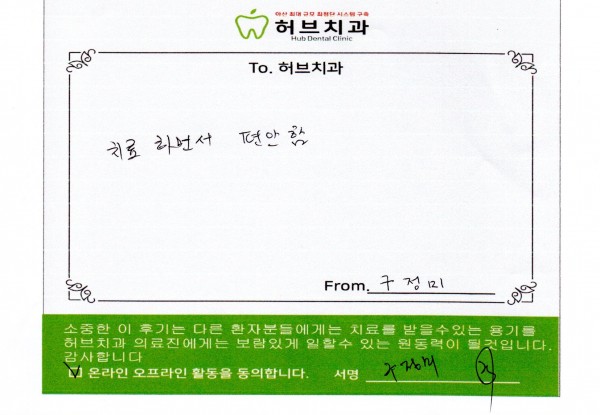 아산 최대 규모 최첨단 시스템 구축
허브치과
Hub Dental Clinic
To. 허브치과
치료 하면서 편안함
From. 구정미
소중한 이 후기는 다른 환자분들에게는 치료를 받을수있는 용기를
허브치과 의료진에게는 보람있게 일할수 있는 원동력이 될것입니다.
감사합니다
온라인 오프라인 활동을 동의합니다. 서명 구정미